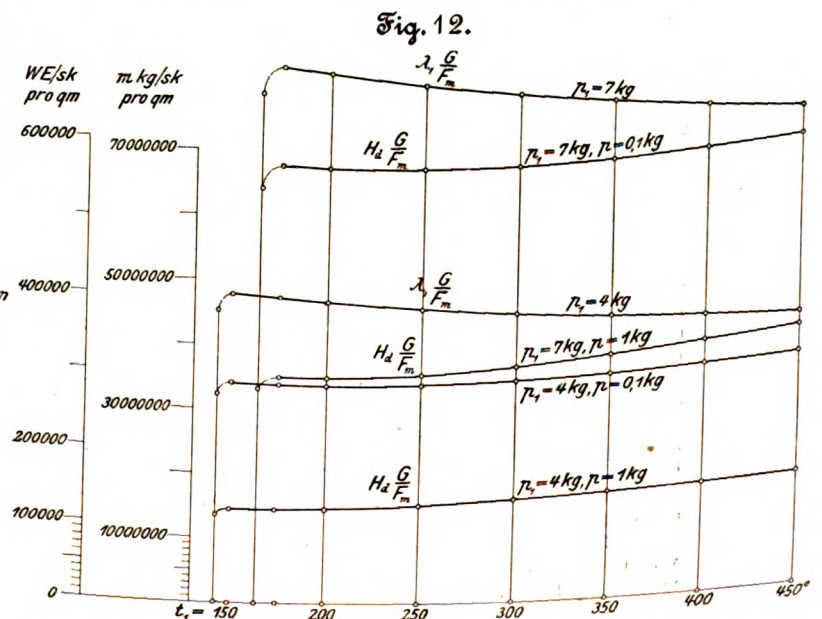 Fig. 12.
WE/sk
pro qm
m kg/sk
pro qm
600000
400000
200000
100000
0
70000000
50000000
30000000
10000000
λ₁ G/Fm
p₁=7kg
Hd G/Fm
p₁=7kg, p=0,1kg
λ₁ G/Fm
p₁=4kg
Hd G/Fm
p₁=7kg, p=1kg
p₁=4kg, p=0,1kg
Hd G/Fm
p₁=4kg, p=1kg
t₁= 150 200 250 300 350 400 450°